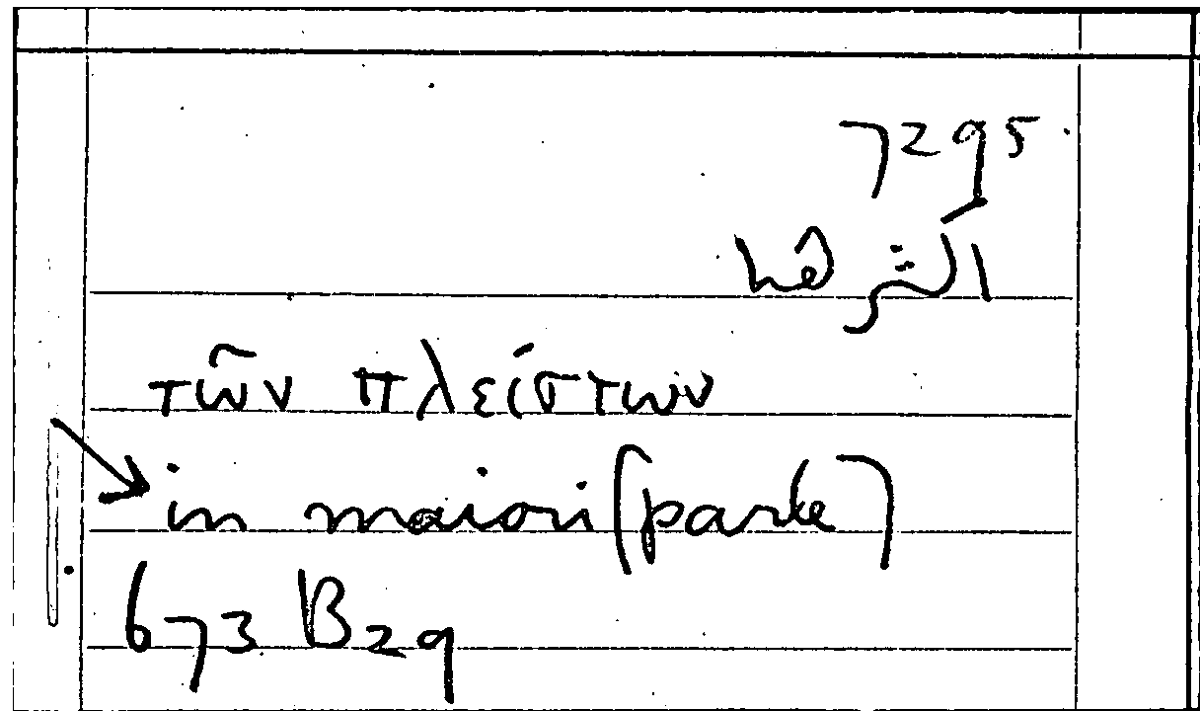 7295
τῶν πλείστων
in maiori (parte)
673 B29